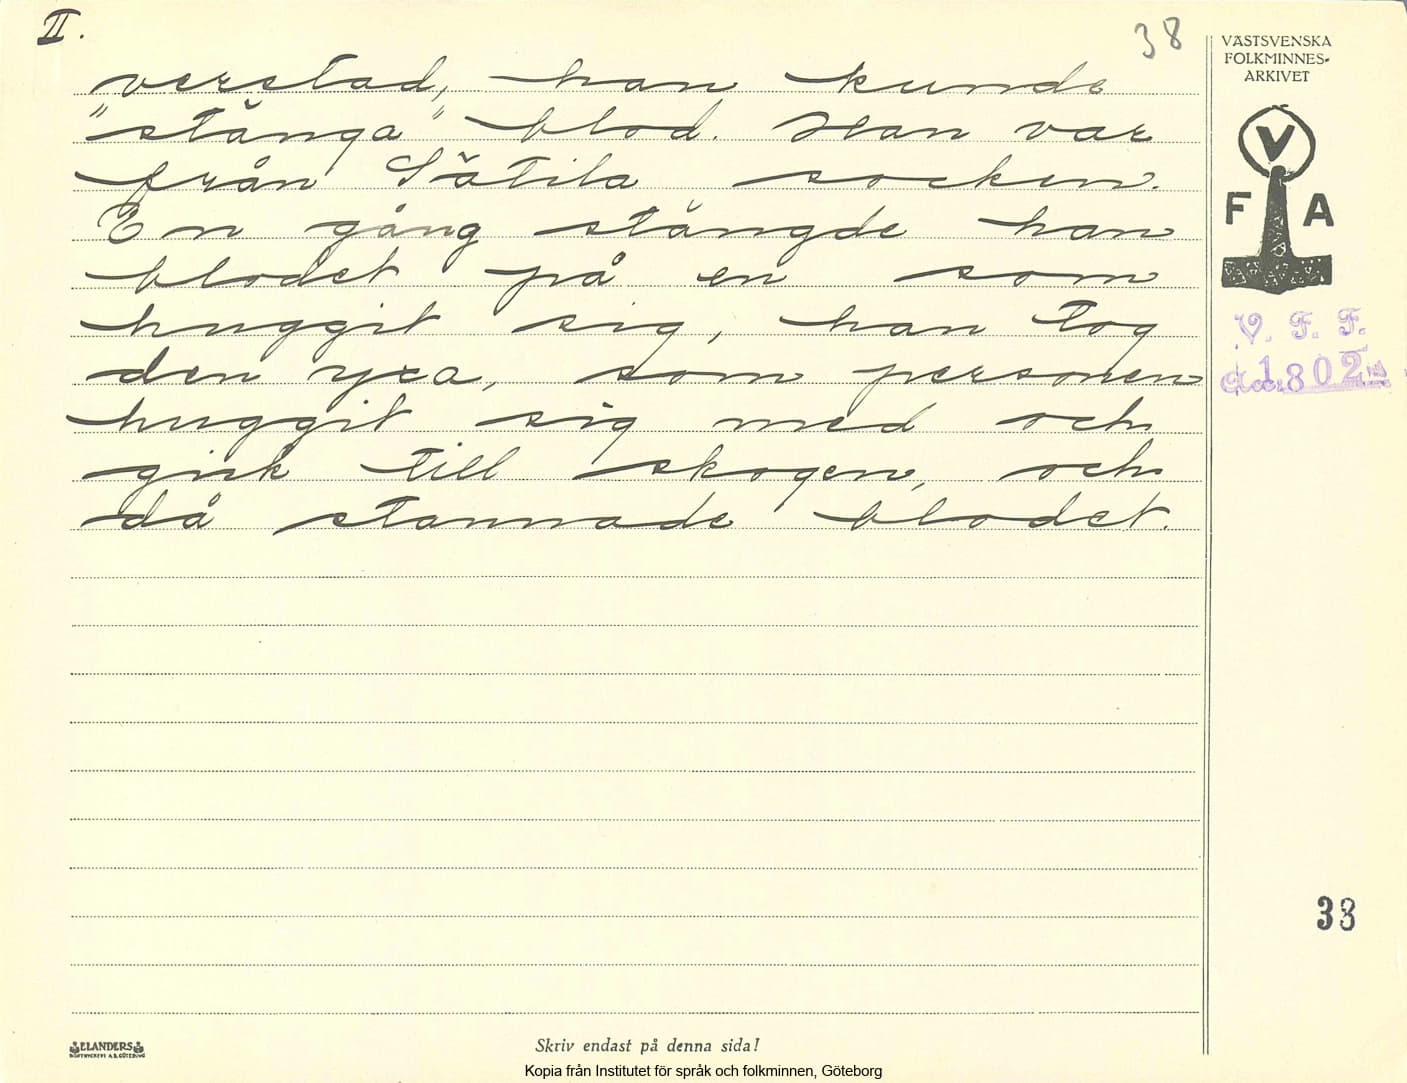 II.
38
verstad, han kunde
"stänga" blod. Han var
från Sätila socken.
En gång stängde han
blodet på en som
huggit sig, han tog
den yxa, som personen
huggit sig med och
gick till skogen, och
då stannade blodet.
VÄSTSVENSKA
FOLKMINNES-
ARKIVET
V
F A
V. F. F.
1802
38
ELANDERS
Skriv endast på denna sida!
Kopia från Institutet för språk och folkminnen, Göteborg